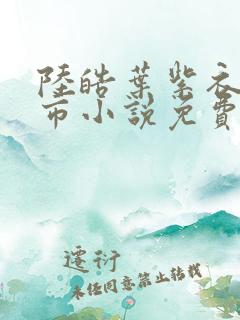 陸皓葉紫衣
币小說免費
遷衍
未任同意禁止转载